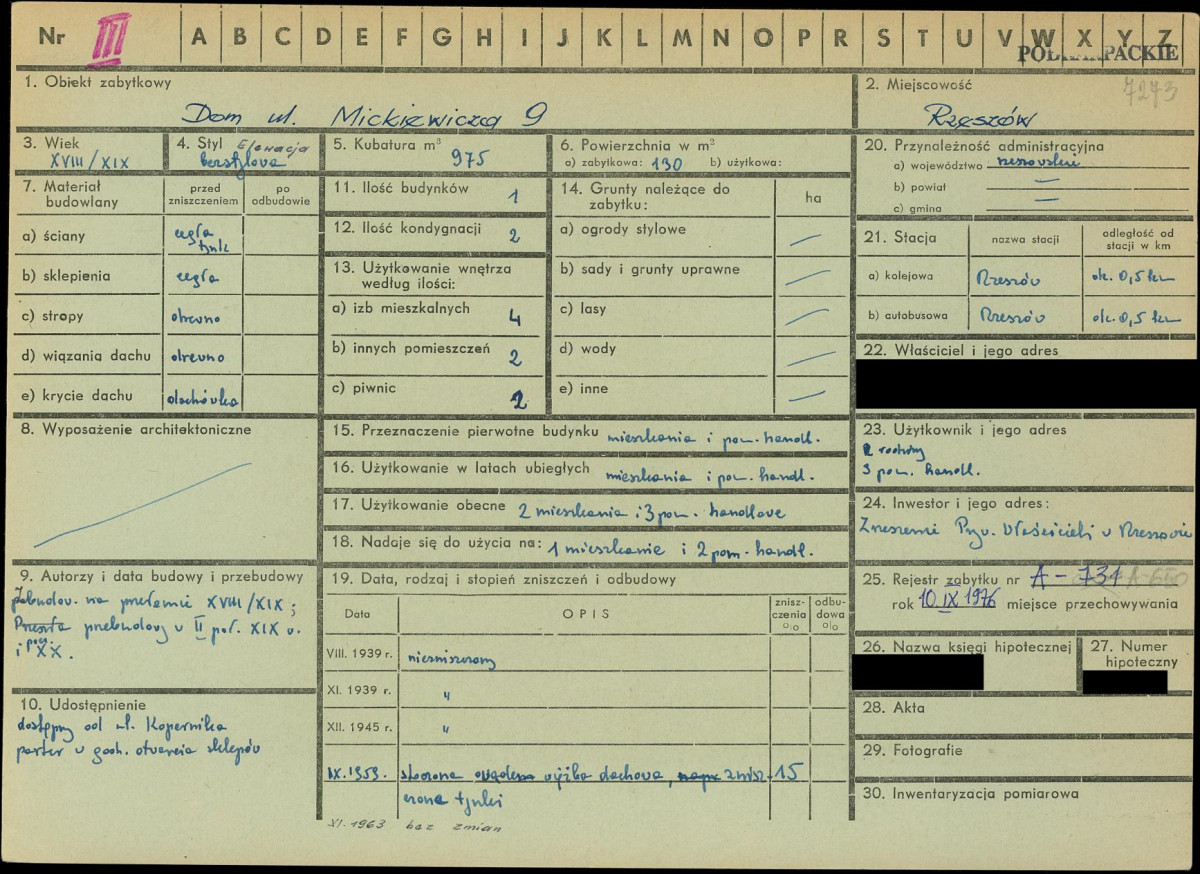 Nr III A B C D E F G H I J K L M N O P R S T U V W X Y Z
1. Obiekt zabytkowy
Dom ul. Mickiewicza 9
2. Miejscowość 7273
Rzeszów
3. Wiek
XVIII/XIX
4. Styl Elewacja
bezstylowa
5. Kubatura m³
975
6. Powierzchnia w m²
a) zabytkowa: 130 b) użytkowa:
7. Materiał budowlany
przed zniszczeniem
po odbudowie
a) ściany cegła tynk
b) sklepienia cegła
c) stropy drewno
d) wiązania dachu drewno
e) krycie dachu dachówka
8. Wyposażenie architektoniczne
9. Autorzy i data budowy i przebudowy
Zbudow. na przełomie XVIII/XIX;
przebudowy w II poł. XIX w.
i pocz. XX.
10. Udostępnienie
dostępny od ul. Kopernika
parter w godz. otwarcia sklepów
11. Ilość budynków 1
12. Ilość kondygnacji 2
13. Użytkowanie wnętrza
według ilości:
a) izb mieszkalnych 4
b) innych pomieszczeń 2
c) piwnic 2
14. Grunty należące do
zabytku:
ha
a) ogrody stylowe
b) sady i grunty uprawne
c) lasy
d) wody
e) inne
15. Przeznaczenie pierwotne budynku mieszkania i pom. handl.
16. Użytkowanie w latach ubiegłych mieszkania i pom. handl.
17. Użytkowanie obecne 2 mieszkania i 3 pom. handlowe
18. Nadaje się do użycia na: 1 mieszkanie i 2 pom. handl.
19. Data, rodzaj i stopień zniszczeń i odbudowy
Data
OPIS
znisz-
czenia
o/o
odbu-
dowa
o/o
VIII. 1939 r. niezniszczony
XI. 1939 r. "
XII. 1945 r. "
IX. 1959. więźba dachowa, znisz- 15
czone tynki
XI. 1963 bez zmian
20. Przynależność administracyjna
a) województwo rzeszowskie
b) powiat —
c) gmina —
21. Stacja
nazwa stacji
odległość od
stacji w km
a) kolejowa Rzeszów ok. 0,5 km
b) autobusowa Rzeszów ok. 0,5 km
22. Właściciel i jego adres
23. Użytkownik i jego adres
2 rodziny
3 pom. handl.
24. Inwestor i jego adres:
Zrzeszenie Pryw. Właścicieli w Rzeszowie
25. Rejestr zabytku nr A-734 A-650
rok 10.IX 1976 miejsce przechowywania
26. Nazwa księgi hipotecznej
27. Numer
hipoteczny
28. Akta
29. Fotografie
30. Inwentaryzacja pomiarowa